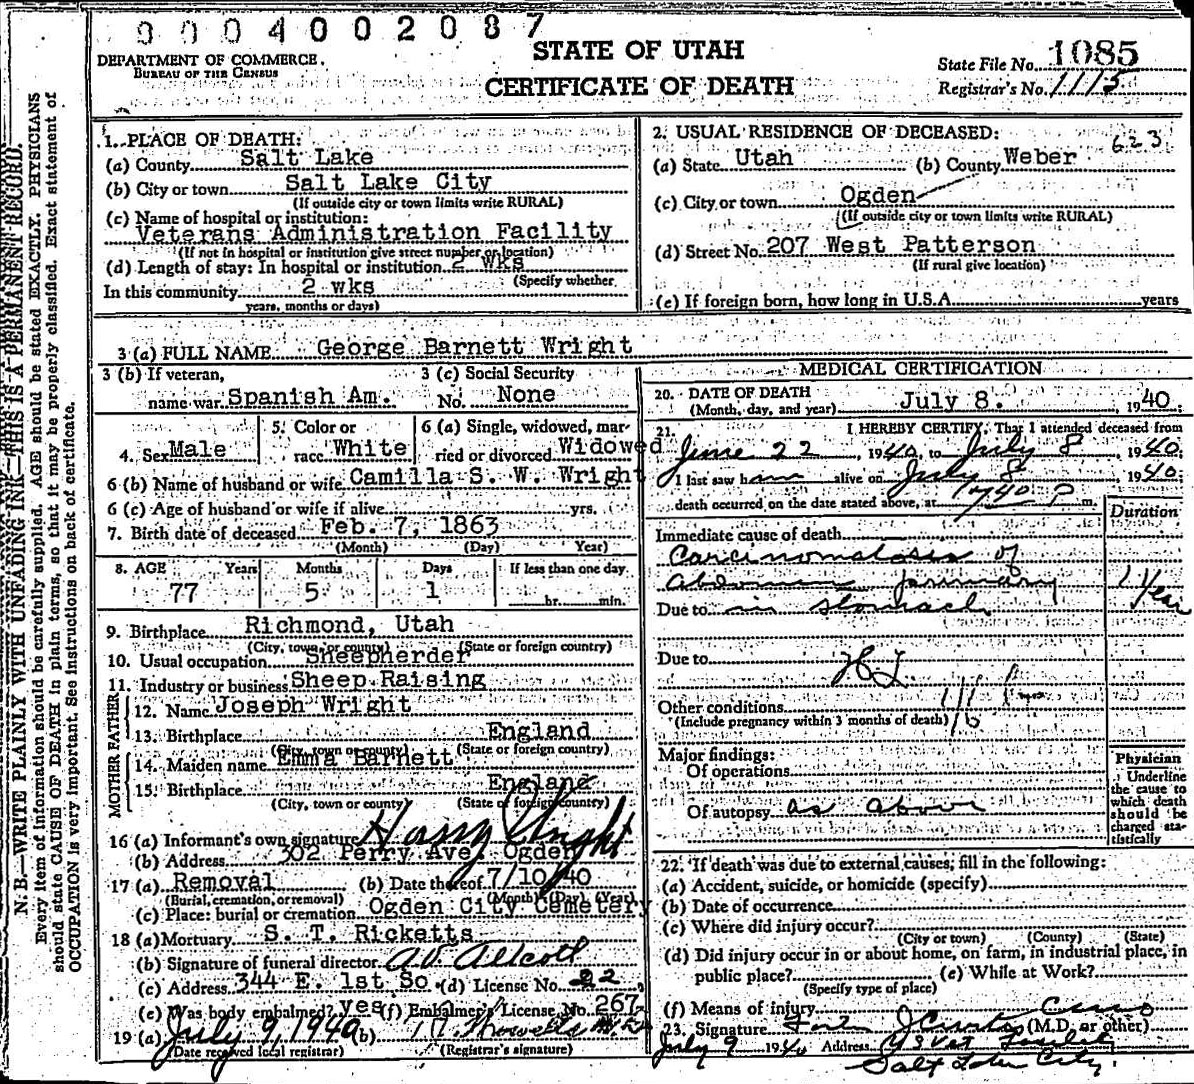 0004002087
DEPARTMENT OF COMMERCE.
BUREAU OF THE CENSUS
STATE OF UTAH
CERTIFICATE OF DEATH
State File No. 1085
Registrar's No. 1115
N. B.—WRITE PLAINLY WITH UNFADING INK—THIS IS A PERMANENT RECORD.
Every item of information should be carefully supplied. AGE should be stated EXACTLY. PHYSICIANS
should state CAUSE OF DEATH in plain terms, so that it may be properly classified. Exact statement of
OCCUPATION is very important. See instructions on back of certificate.
1. PLACE OF DEATH:
(a) County Salt Lake
(b) City or town Salt Lake City
(If outside city or town limits write RURAL)
(c) Name of hospital or institution:
Veterans Administration Facility
(If not in hospital or institution give street number or location)
(d) Length of stay: In hospital or institution 2 wks
(Specify whether
In this community 2 wks
years, months or days)
2. USUAL RESIDENCE OF DECEASED:
623
(a) State Utah (b) County Weber
(c) City or town Ogden
(If outside city or town limits write RURAL)
(d) Street No. 207 West Patterson
(If rural give location)
(e) If foreign born, how long in U.S.A. years
3 (a) FULL NAME George Barnett Wright
3 (b) If veteran, 3 (c) Social Security
name war Spanish Am. No. None
4. Sex Male 5. Color or race White 6 (a) Single, widowed, married or divorced Widowed
6 (b) Name of husband or wife Camilla S. W. Wright
6 (c) Age of husband or wife if alive yrs.
7. Birth date of deceased Feb. 7, 1863
(Month) (Day) Year)
8. AGE Years Months Days If less than one day
77 5 1 hr. min.
9. Birthplace Richmond, Utah
(City, town, or county) (State or foreign country)
10. Usual occupation Sheepherder
11. Industry or business Sheep Raising
FATHER
12. Name Joseph Wright
13. Birthplace England
(City, town or county) (State or foreign country)
MOTHER
14. Maiden name Emma Barnett
15. Birthplace England
(City, town or county) (State or foreign country)
16 (a) Informant's own signature Harry Wright
(b) Address 302 Perry Ave. Ogden
17 (a) Removal (b) Date thereof 7/10/40
(Burial, cremation, or removal) (Month) (Day) (Year)
(c) Place: burial or cremation Ogden City Cemetery
18 (a) Mortuary S. T. Ricketts
(b) Signature of funeral director
(c) Address 344 E. 1st So. (d) License No. 22
(e) Was body embalmed? yes (f) Embalmer's License No. 267
19 (a) July 9, 1940 (b)
(Date received local registrar) (Registrar's signature)
MEDICAL CERTIFICATION
20. DATE OF DEATH
(Month, day, and year) July 8. 1940.
21. I HEREBY CERTIFY, That I attended deceased from
June 22, 1940, to July 8, 1940;
I last saw h im alive on July 8 1940;
death occurred on the date stated above, at P m.
Duration
Immediate cause of death
Carcinomatosis of
Abdomen primary 1 Year
Due to in stomach
Due to
Other conditions
(Include pregnancy within 3 months of death)
Major findings:
Of operations
Of autopsy as above
Physician
Underline
the cause to
which death
should be
charged sta-
tistically
22. If death was due to external causes, fill in the following:
(a) Accident, suicide, or homicide (specify)
(b) Date of occurrence
(c) Where did injury occur?
(City or town) (County) (State)
(d) Did injury occur in or about home, on farm, in industrial place, in
public place? (e) While at Work?
(Specify type of place)
(f) Means of injury
23. Signature (M.D. or other)
July 9 1940 Address
Salt Lake City.